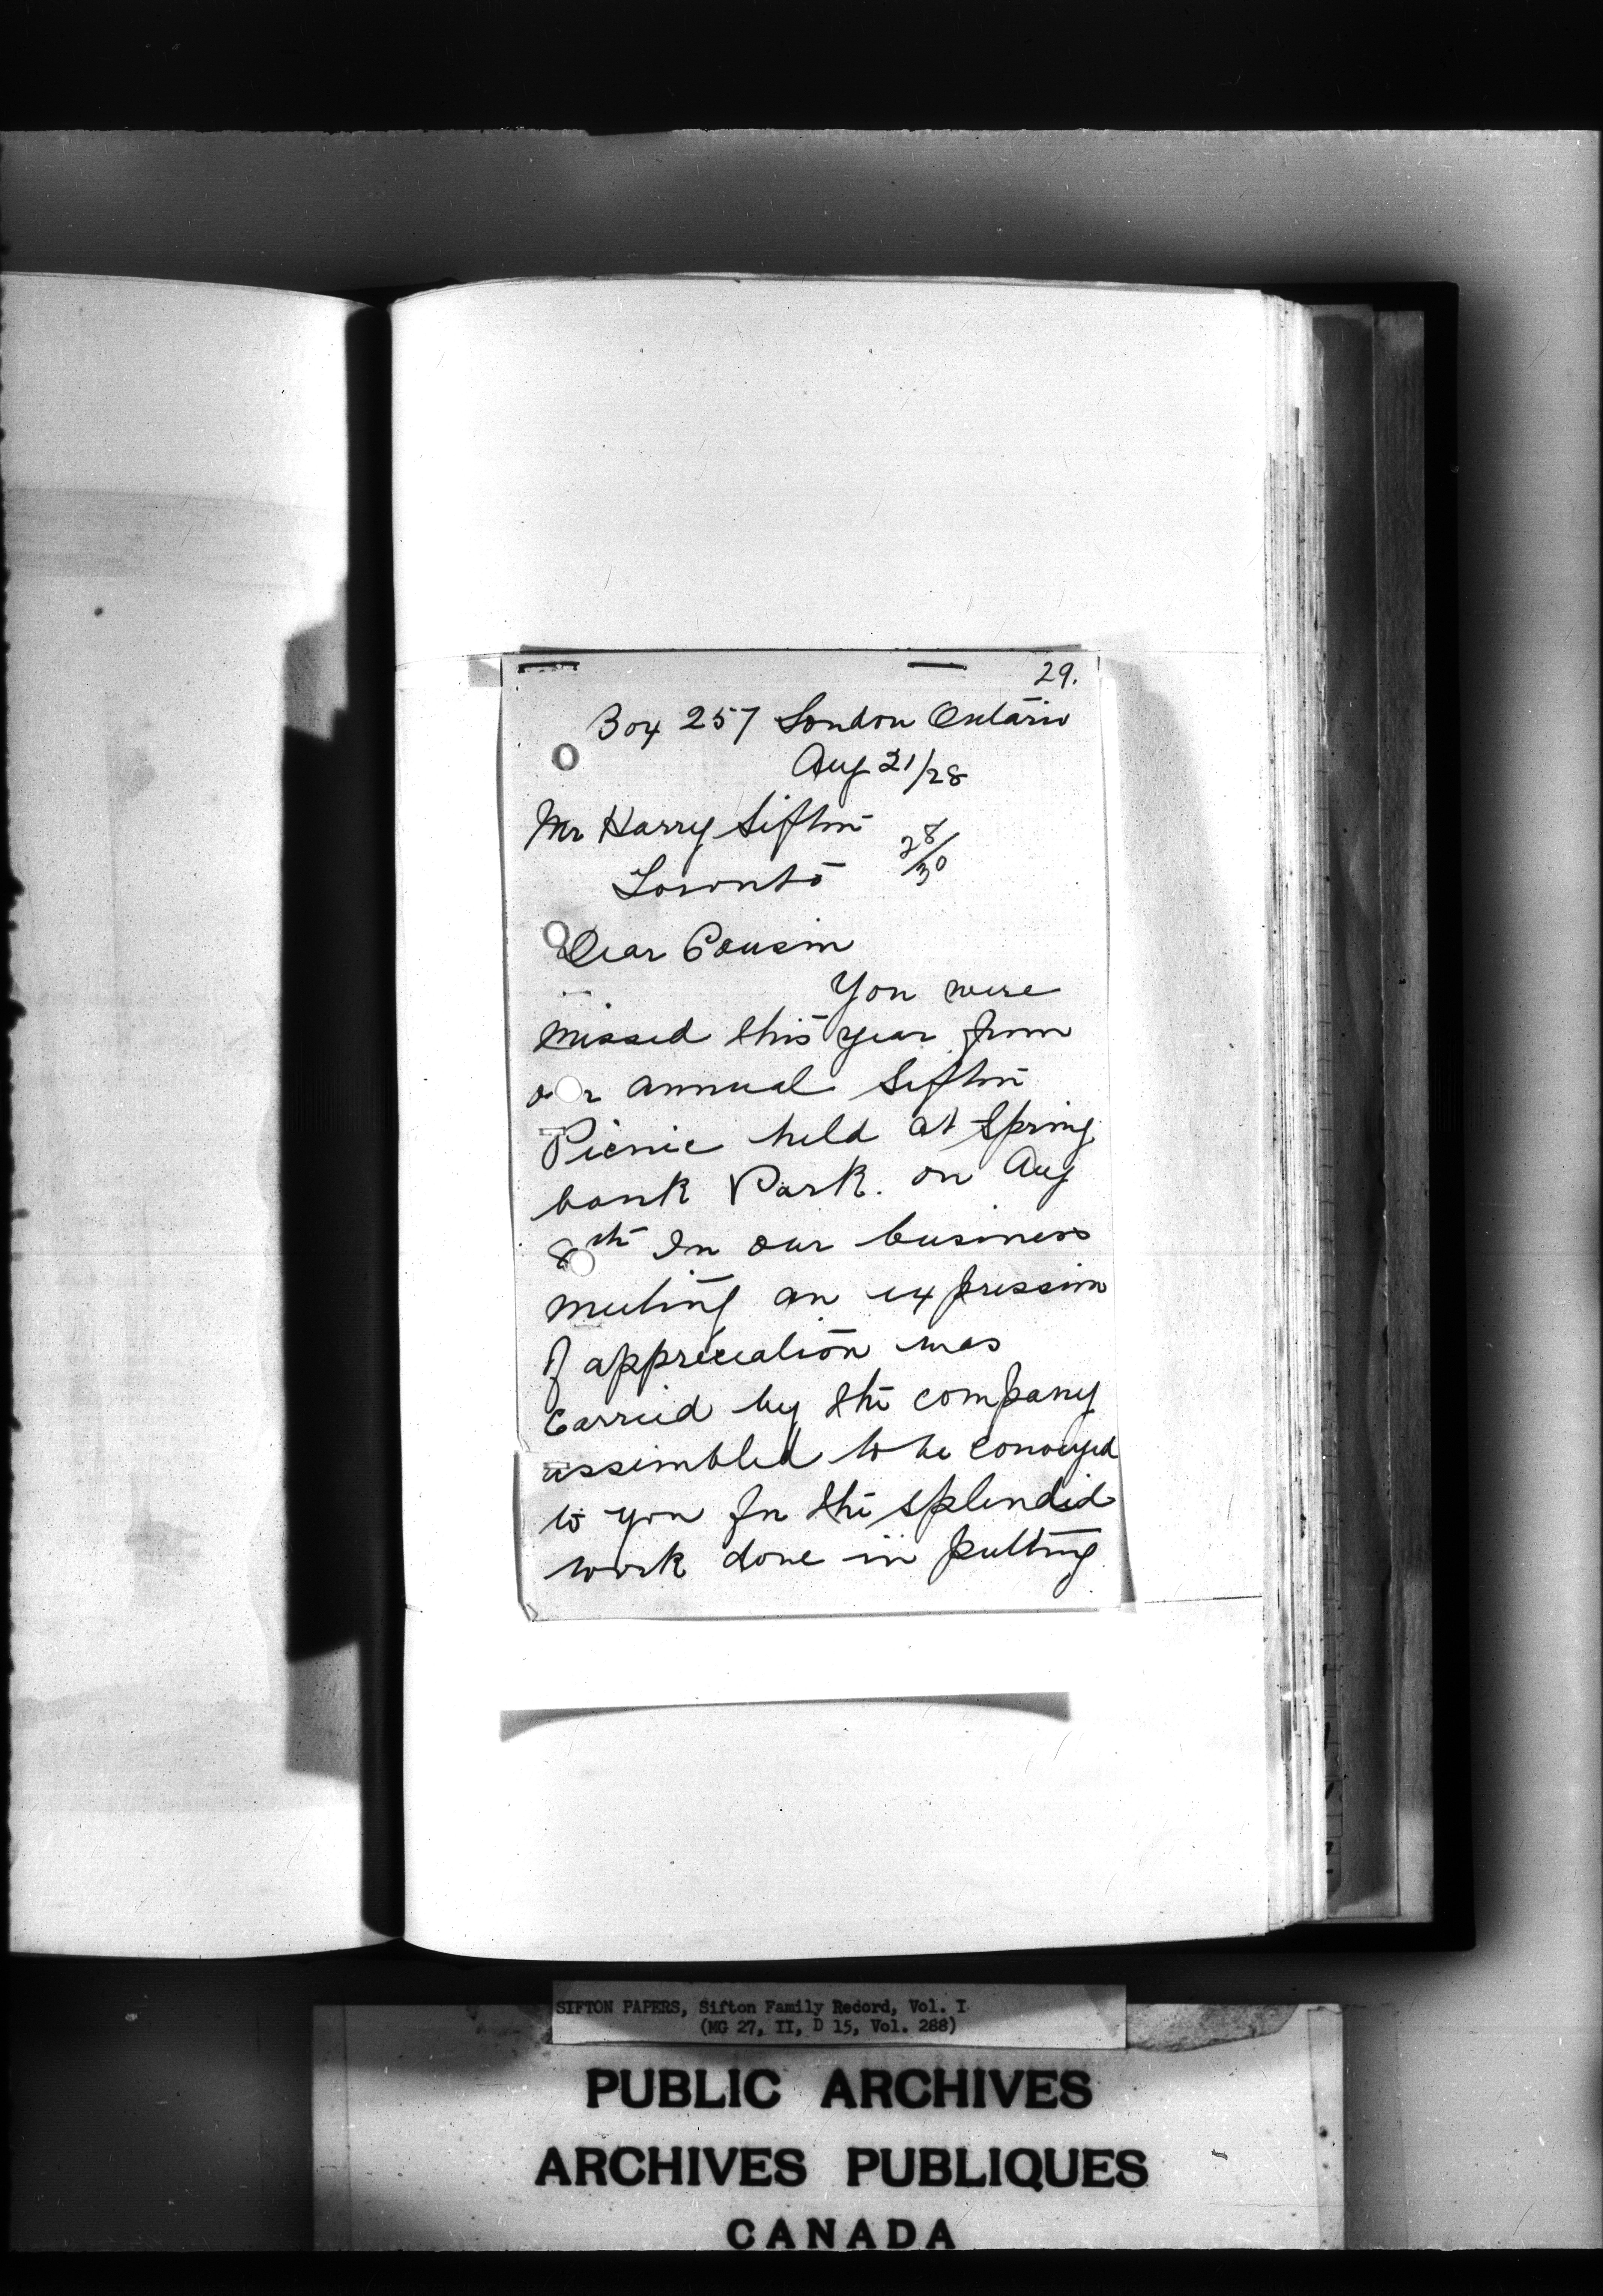 29.
Box 257 London Ontario
Aug 21/28
Mr Harry Sifton
28/30
Toronto
Dear Cousin
You were
missed this year from
our annual Sifton
Picnic held at Spring
bank Park. on Aug
8th In our business
meeting an expression
of appreciation was
carried by the company
assembled to be conveyed
to you for the splendid
work done in putting
SIFTON PAPERS, Sifton Family Record, Vol. I
(MG 27, II, D 15, Vol. 288)
PUBLIC ARCHIVES
ARCHIVES PUBLIQUES
CANADA